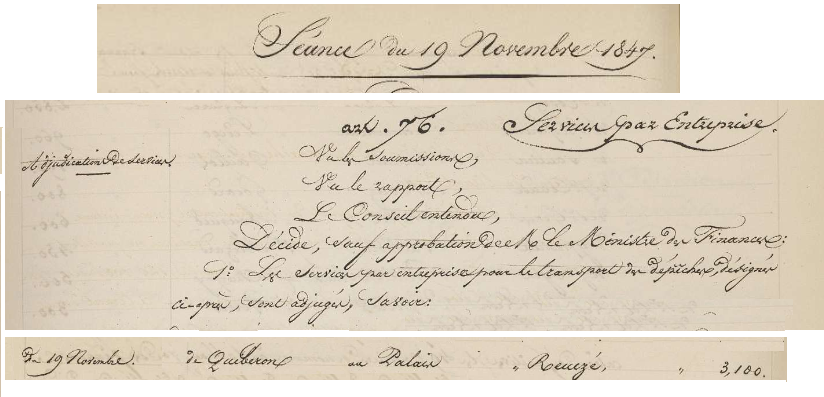 Séance du 19 Novembre 1847.
art. 76. Services par Entreprise.
Adjudication de Services.
Vu les soumissions,
Vu le rapport,
Le Conseil entendu,
Décide, sauf approbation de M le Ministre des Finances:
1º Les services par entreprise pour le transport des dépêches, désignés
ci-après, sont adjugés, Savoir:
Du 19 Novembre. de Quiberon au Palais " Reuzé, " 3,100.